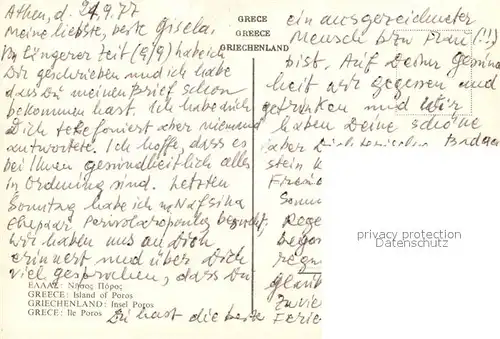 Athen, d. 24.9.77
Meine liebste, beste Gisela.
Vor längerer Zeit (9/9) habe ich
Dir geschrieben und ich habe
dass Du meinen Brief schon
bekommen hast. Ich habe auch
Dich telefoniert aber niemand
antwortete. Ich hoffe, dass es
bei Ihnen gesundheitlich alles
in Ordnung sind. Letzten
Sonntag habe ich Nafsina
Ehepaar besucht.
Wir haben uns an Dich
erinnert und über Dich
viel gesprochen, dass Du
ΕΛΛΑΣ: Νῆσος Πόρος
GREECE: Island of Poros
GRIECHENLAND: Insel Poros
GRECE: Ile Poros
Du hast die beste
GRECE
GREECE
GRIECHENLAND
ein ausgezeichneter
Mensch bzw Frau (!!)
bist. Auf Deiner Gesund
heit wir gegessen und
getrunken und wir
haben Deine schöne
aber
stein
Sonn
Rege
bego
regn
glaub
zuvie
Ferie
privacy protection
Datenschutz